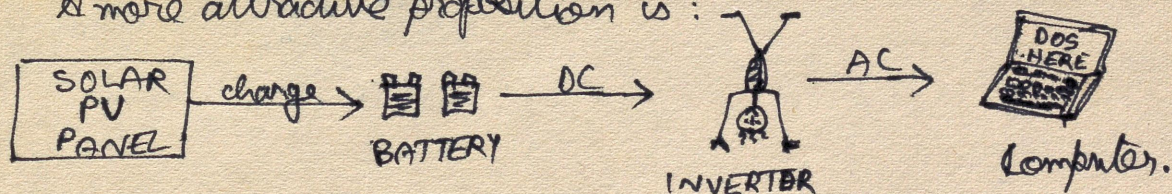 A more attractive proposition is :
SOLAR PV PANEL
charge
BATTERY
DC
INVERTER
AC
DOS
HERE
Computer.